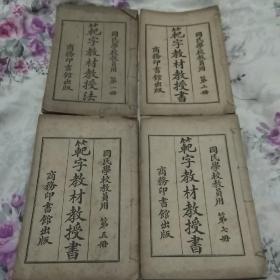 國民學校教員用 第一冊
範字教材教授法
商務印書館出版
國民學校教員用 第二冊
範字教材教授書
商務印書館出版
國民學校教員用 第五冊
範字教材教授書
商務印書館出版
國民學校教員用 第七冊
範字教材教授書
商務印書館出版